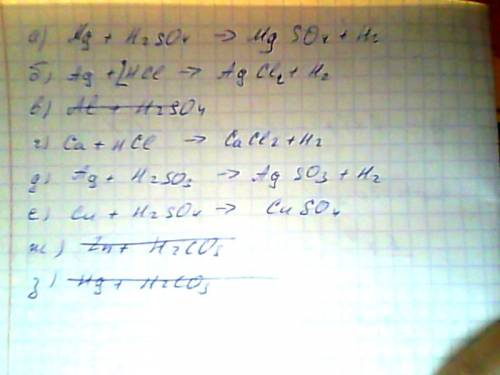 а) Mg + H2SO4 → MgSO4 + H2
б) Ag + 2HCl → AgCl2 + H2
в) Al + H2SO4
г) Ca + HCl → CaCl2 + H2
д) Ag + H2SO3 → AgSO3 + H2
е) Cu + H2SO4 → CuSO4
ж) Zn + H2CO3
з) Hg + H2CO3